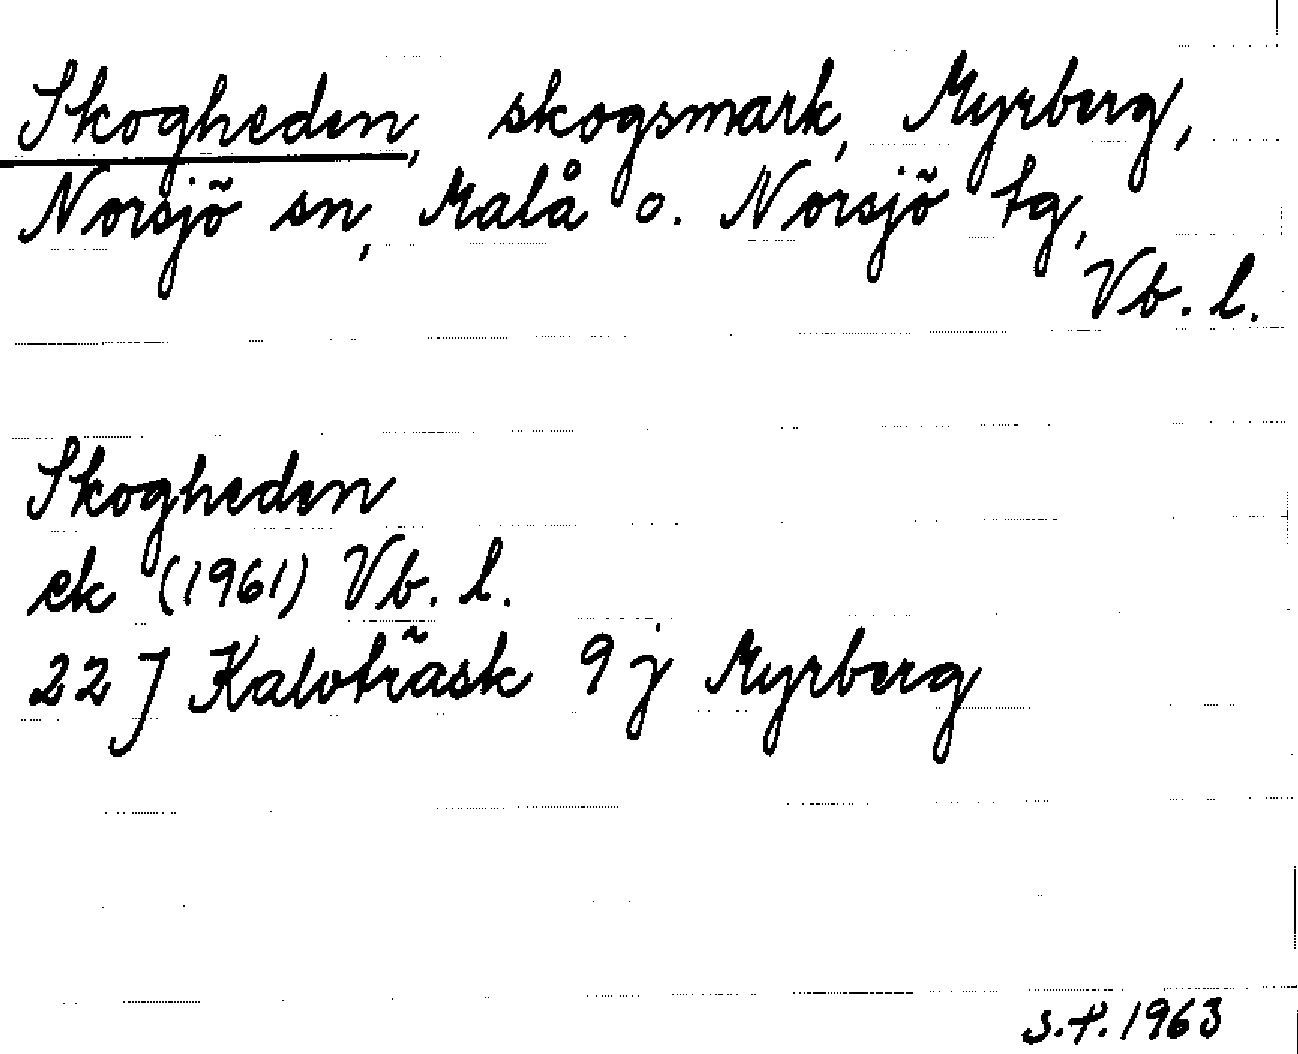 Skogheden, skogsmark, Myrberg,
Norsjö sn, Malå o. Norsjö tg,
Vb. l.
Skogheden
ek (1961) Vb. l.
22 J Kalvträsk 9 j Myrberg
S.P. 1963